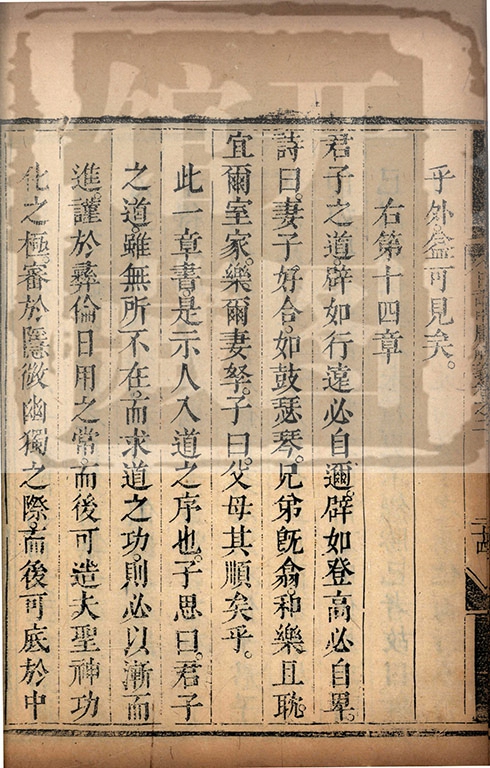 乎外益可見矣。
右第十四章
君子之道。辟如行遠必自邇。辟如登高必自卑。
詩曰。妻子好合。如鼓瑟琴。兄弟既翕。和樂且耽。
宜爾室家。樂爾妻孥。子曰。父母其順矣乎。
此一章書。是示人入道之序也。子思曰。君子
之道。雖無所不在。而求道之功。則必以漸而
進。謹於彝倫日用之常。而後可造夫聖神功
化之極。審於隱微幽獨之際。而後可底於中